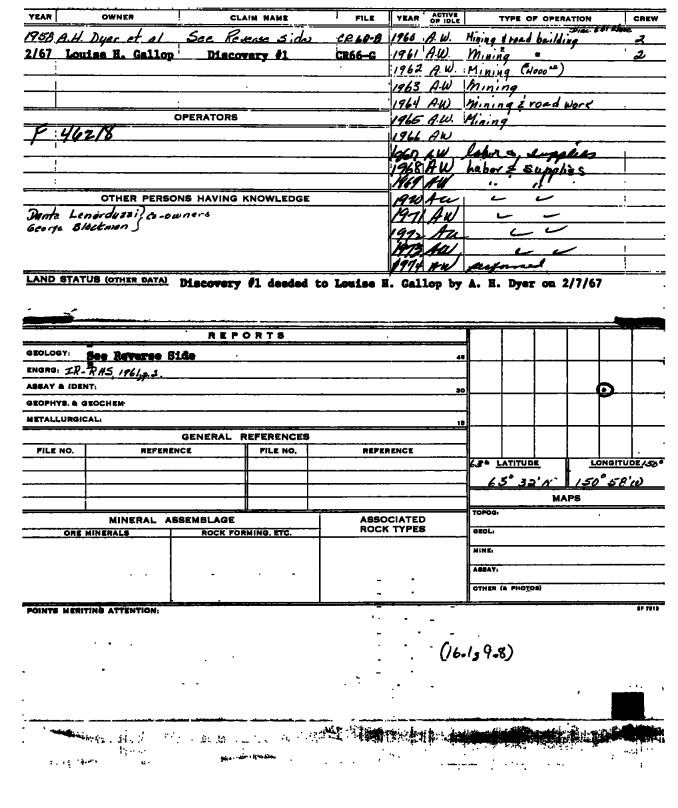 YEAR OWNER CLAIM NAME FILE YEAR ACTIVE OR IDLE TYPE OF OPERATION CREW
1958 A.H. Dyer et al See Reverse Side CR60-8 1960 A.W. Mining & road building 2
2/67 Louise H. Gallop Discovery #1 CR66-G 1961 A.W. Mining " 2
1962 A.W. Mining
1963 A.W Mining
1964 A.W Mining & road work
OPERATORS 1965 A.W. Mining
P 46218 1966 AW
1967 AW labor & supplies
1968 AW Labor & supplies
1969 AW " "
OTHER PERSONS HAVING KNOWLEDGE 1970 AW
Dante Lenarduzzi } co-owners 1971 AW
George Blackman 1972 AW
1973 AW
1974 AW performed
LAND STATUS (OTHER DATA) Discovery #1 deeded to Louise H. Gallop by A. H. Dyer on 2/7/67
REPORTS
GEOLOGY: See Reverse Side 45
ENGRG: IR-RHS, 1961, p.3.
ASSAY & IDENT: 30
GEOPHYS. & GEOCHEM:
METALLURGICAL: 15
GENERAL REFERENCES
FILE NO. REFERENCE FILE NO. REFERENCE
63° LATITUDE LONGITUDE 150°
63° 32' N 150° 58' W
MAPS
MINERAL ASSEMBLAGE ASSOCIATED ROCK TYPES
ORE MINERALS ROCK FORMING, ETC.
TOPOG:
GEOL:
MINE:
ASSAY:
OTHER (& PHOTOS)
POINTS MERITING ATTENTION:
(16.1, 9.8)